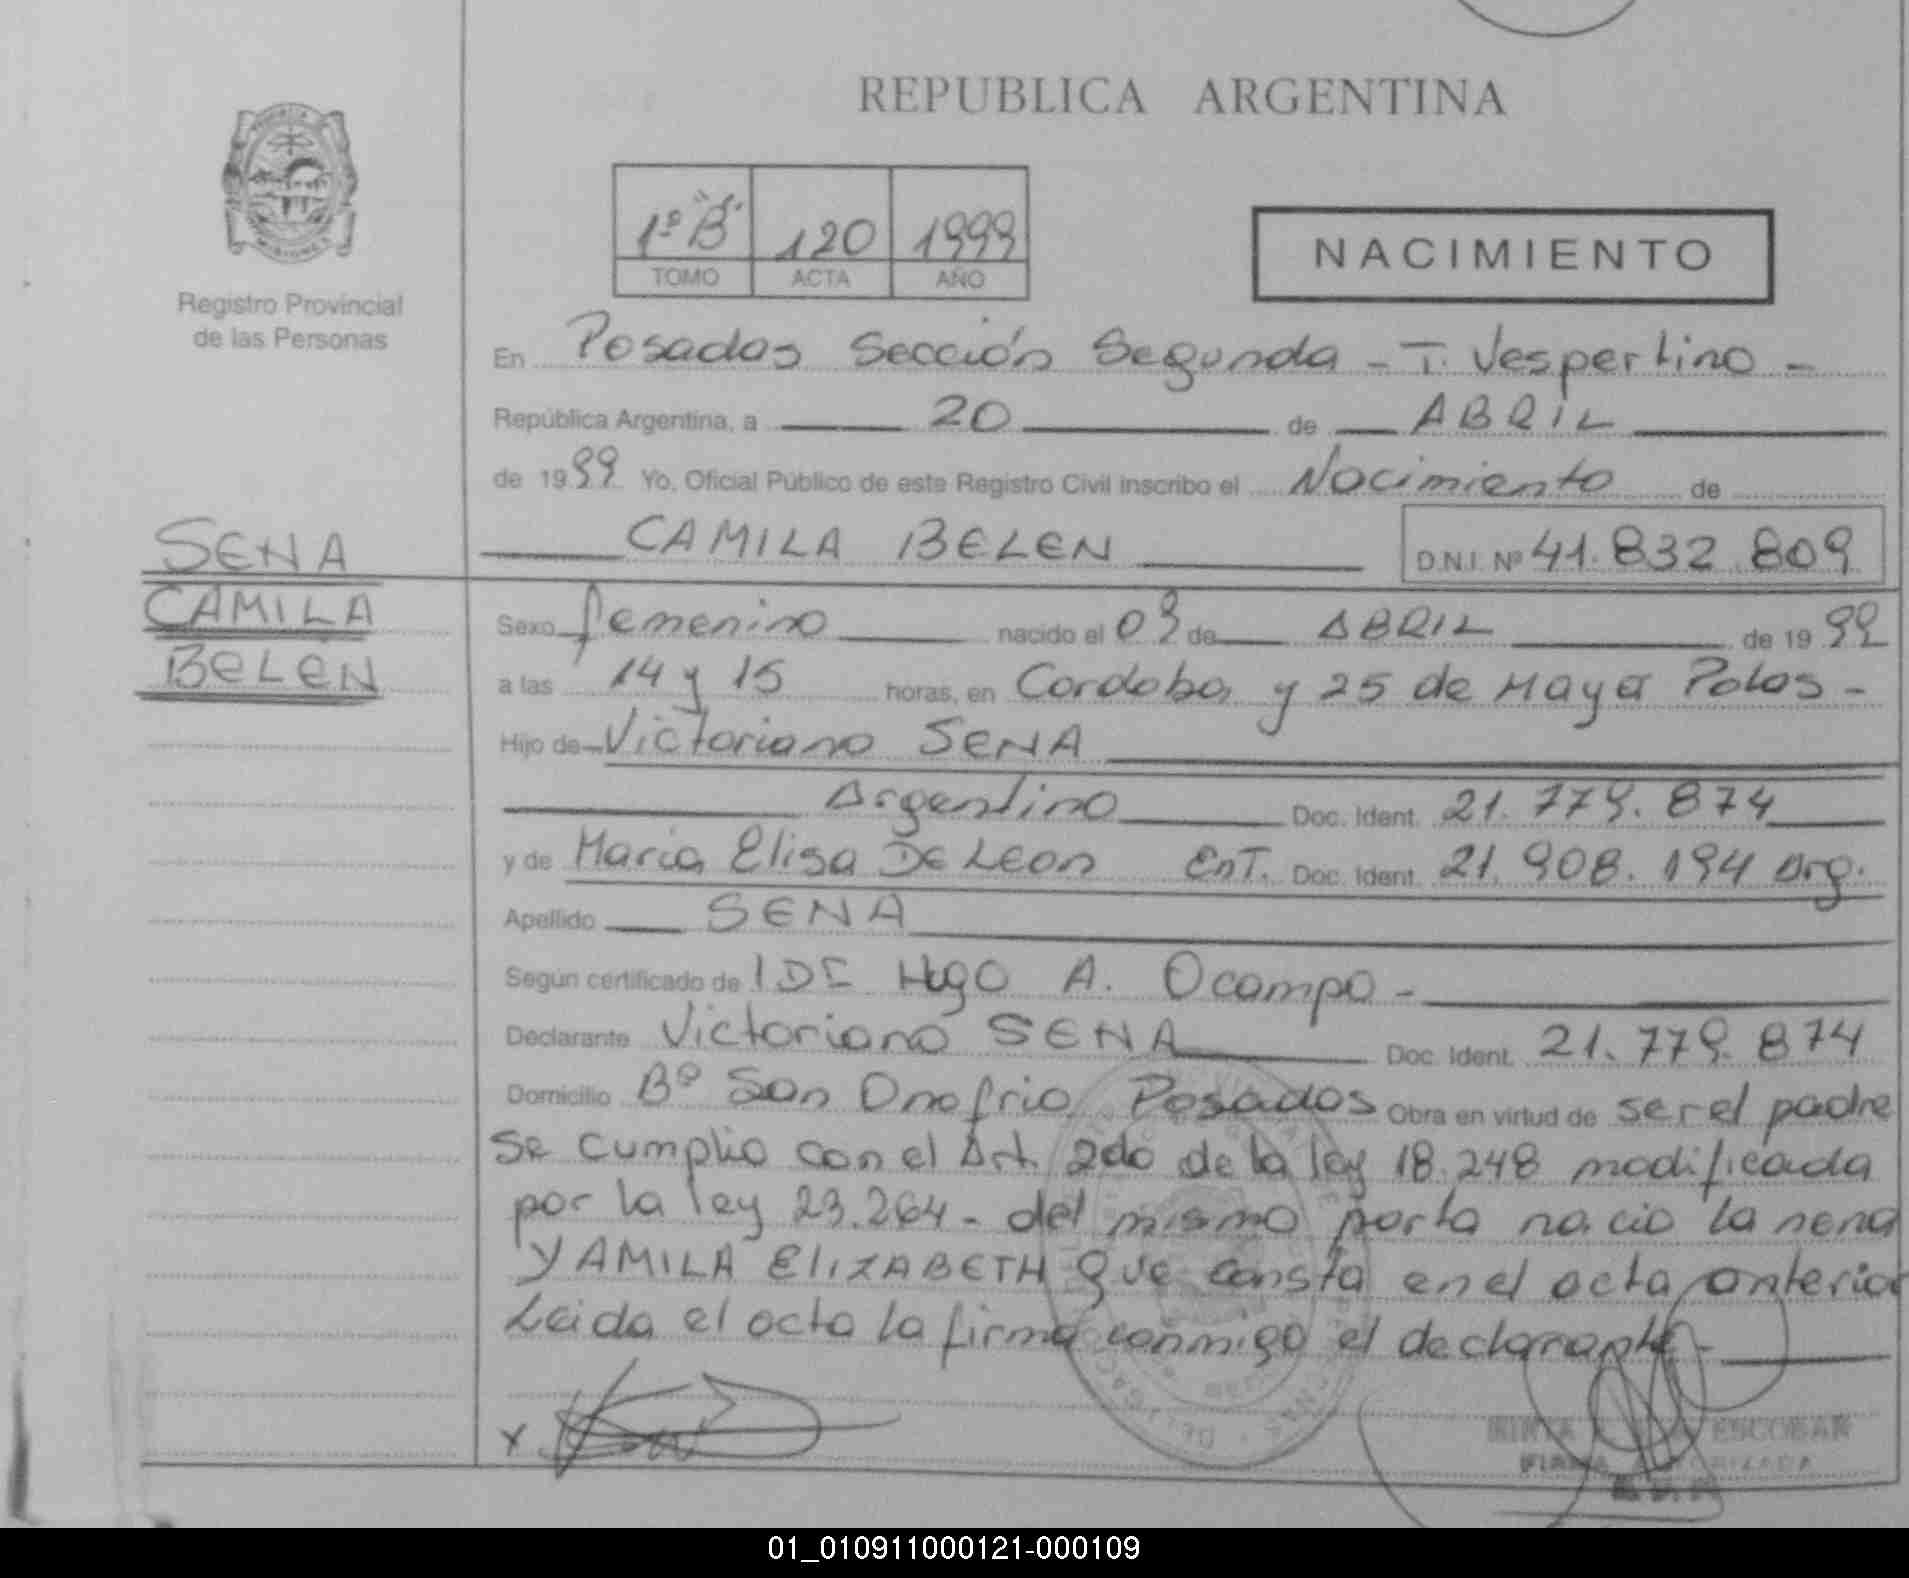 REPUBLICA ARGENTINA
1º "B" 120 1999
TOMO ACTA AÑO
NACIMIENTO
Registro Provincial
de las Personas
En Posadas Sección Segunda - T. Vespertino -
República Argentina, a 20 de ABRIL
de 1999 Yo, Oficial Público de este Registro Civil inscribo el Nacimiento de
CAMILA BELEN D.N.I. Nº 41.832.809
SENA
CAMILA
BELEN
Sexo femenino nacido el 09 de ABRIL de 1999
a las 14 y 15 horas, en Cordoba y 25 de Mayo Pdas -
Hijo de Victoriano SENA
Argentino Doc. Ident. 21.779.874
y de Maria Elisa De Leon EnT. Doc. Ident. 21.908.194 Arg.
Apellido SENA
Según certificado de Hugo A. Ocampo -
Declarante Victoriano SENA Doc. Ident. 21.779.874
Domicilio Bº San Onofrio Posadas Obra en virtud de ser el padre
Se cumplio con el Art. 2do de la ley 18.248 modificada
por la ley 23.264 - del mismo parto nacio la nena
YAMILA ELIZABETH que consta en el acta anterior
Leida el acta la firma conmigo el declarante -
x
ESCOBAR
01_010911000121-000109